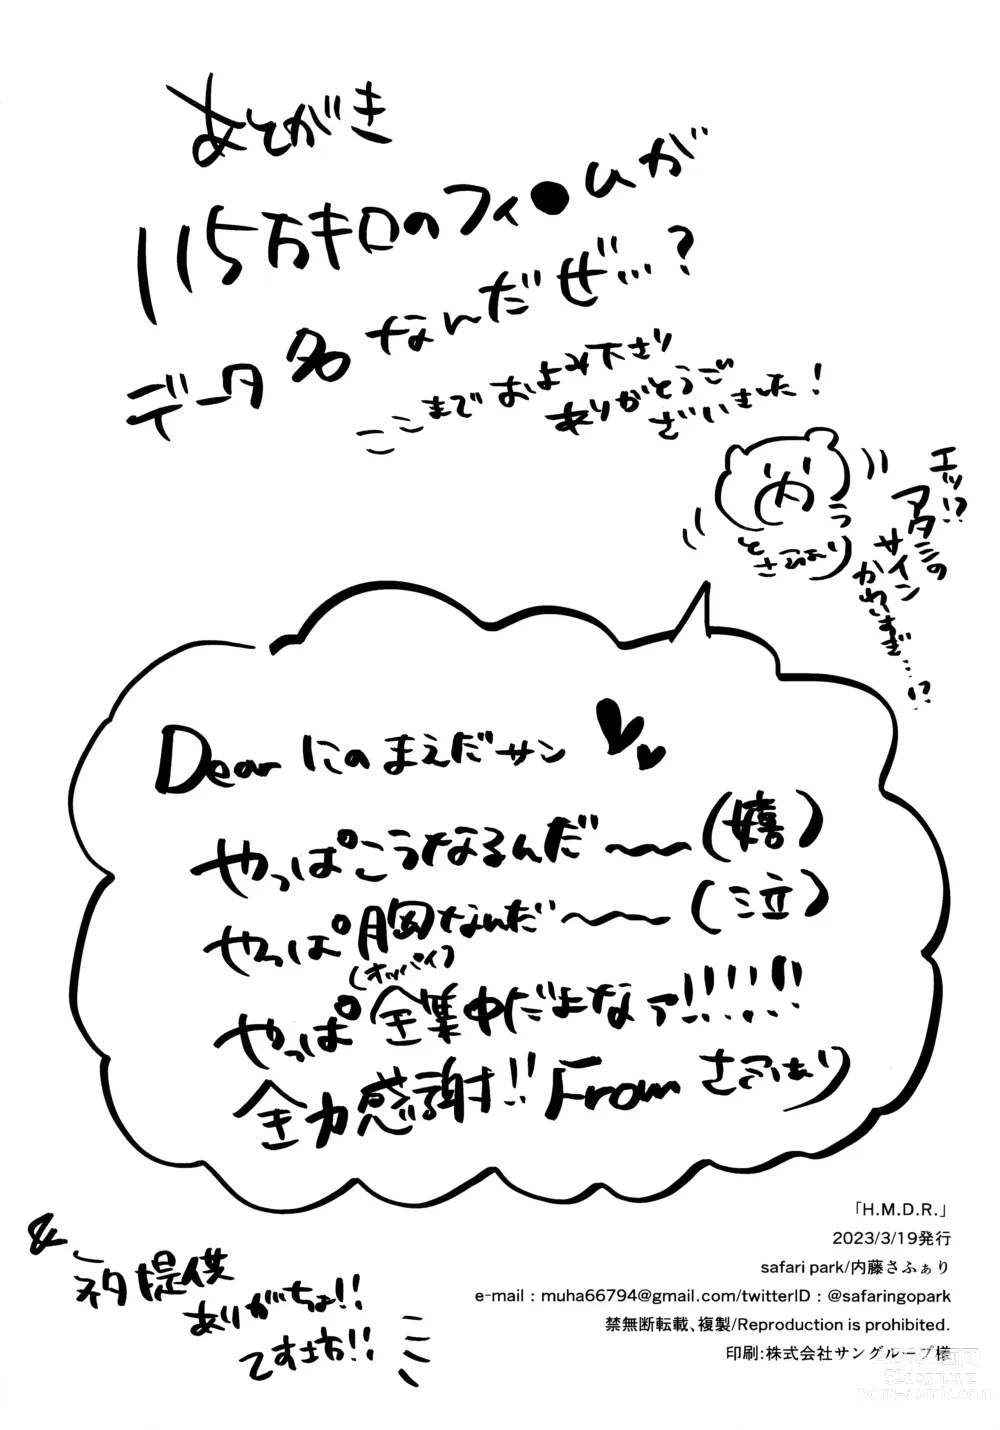 あとがき
115万キロのフィ●ムが
データ名なんだぜ…?
ここまでおよみ下さり
ありがとうご
ざいました!
エッ!?
アタシの
サイン
かわいすぎ…!?
さふぁり
Dear にのまえだサン
やっぱこうなるんだ〜〜(嬉)
やっぱ胸なんだ〜〜(泣)
(オッパイ)
やっぱ全集中だよなァ!!!!!
全力感謝!! From さふぁり
&
ネタ提供
ありがちょ!!
てすまお!!
「H.M.D.R.」
2023/3/19発行
safari park/内藤さふぁり
e-mail : muha66794@gmail.com/twitterID : @safaringopark
禁無断転載、複製/Reproduction is prohibited.
印刷:株式会社サングループ様